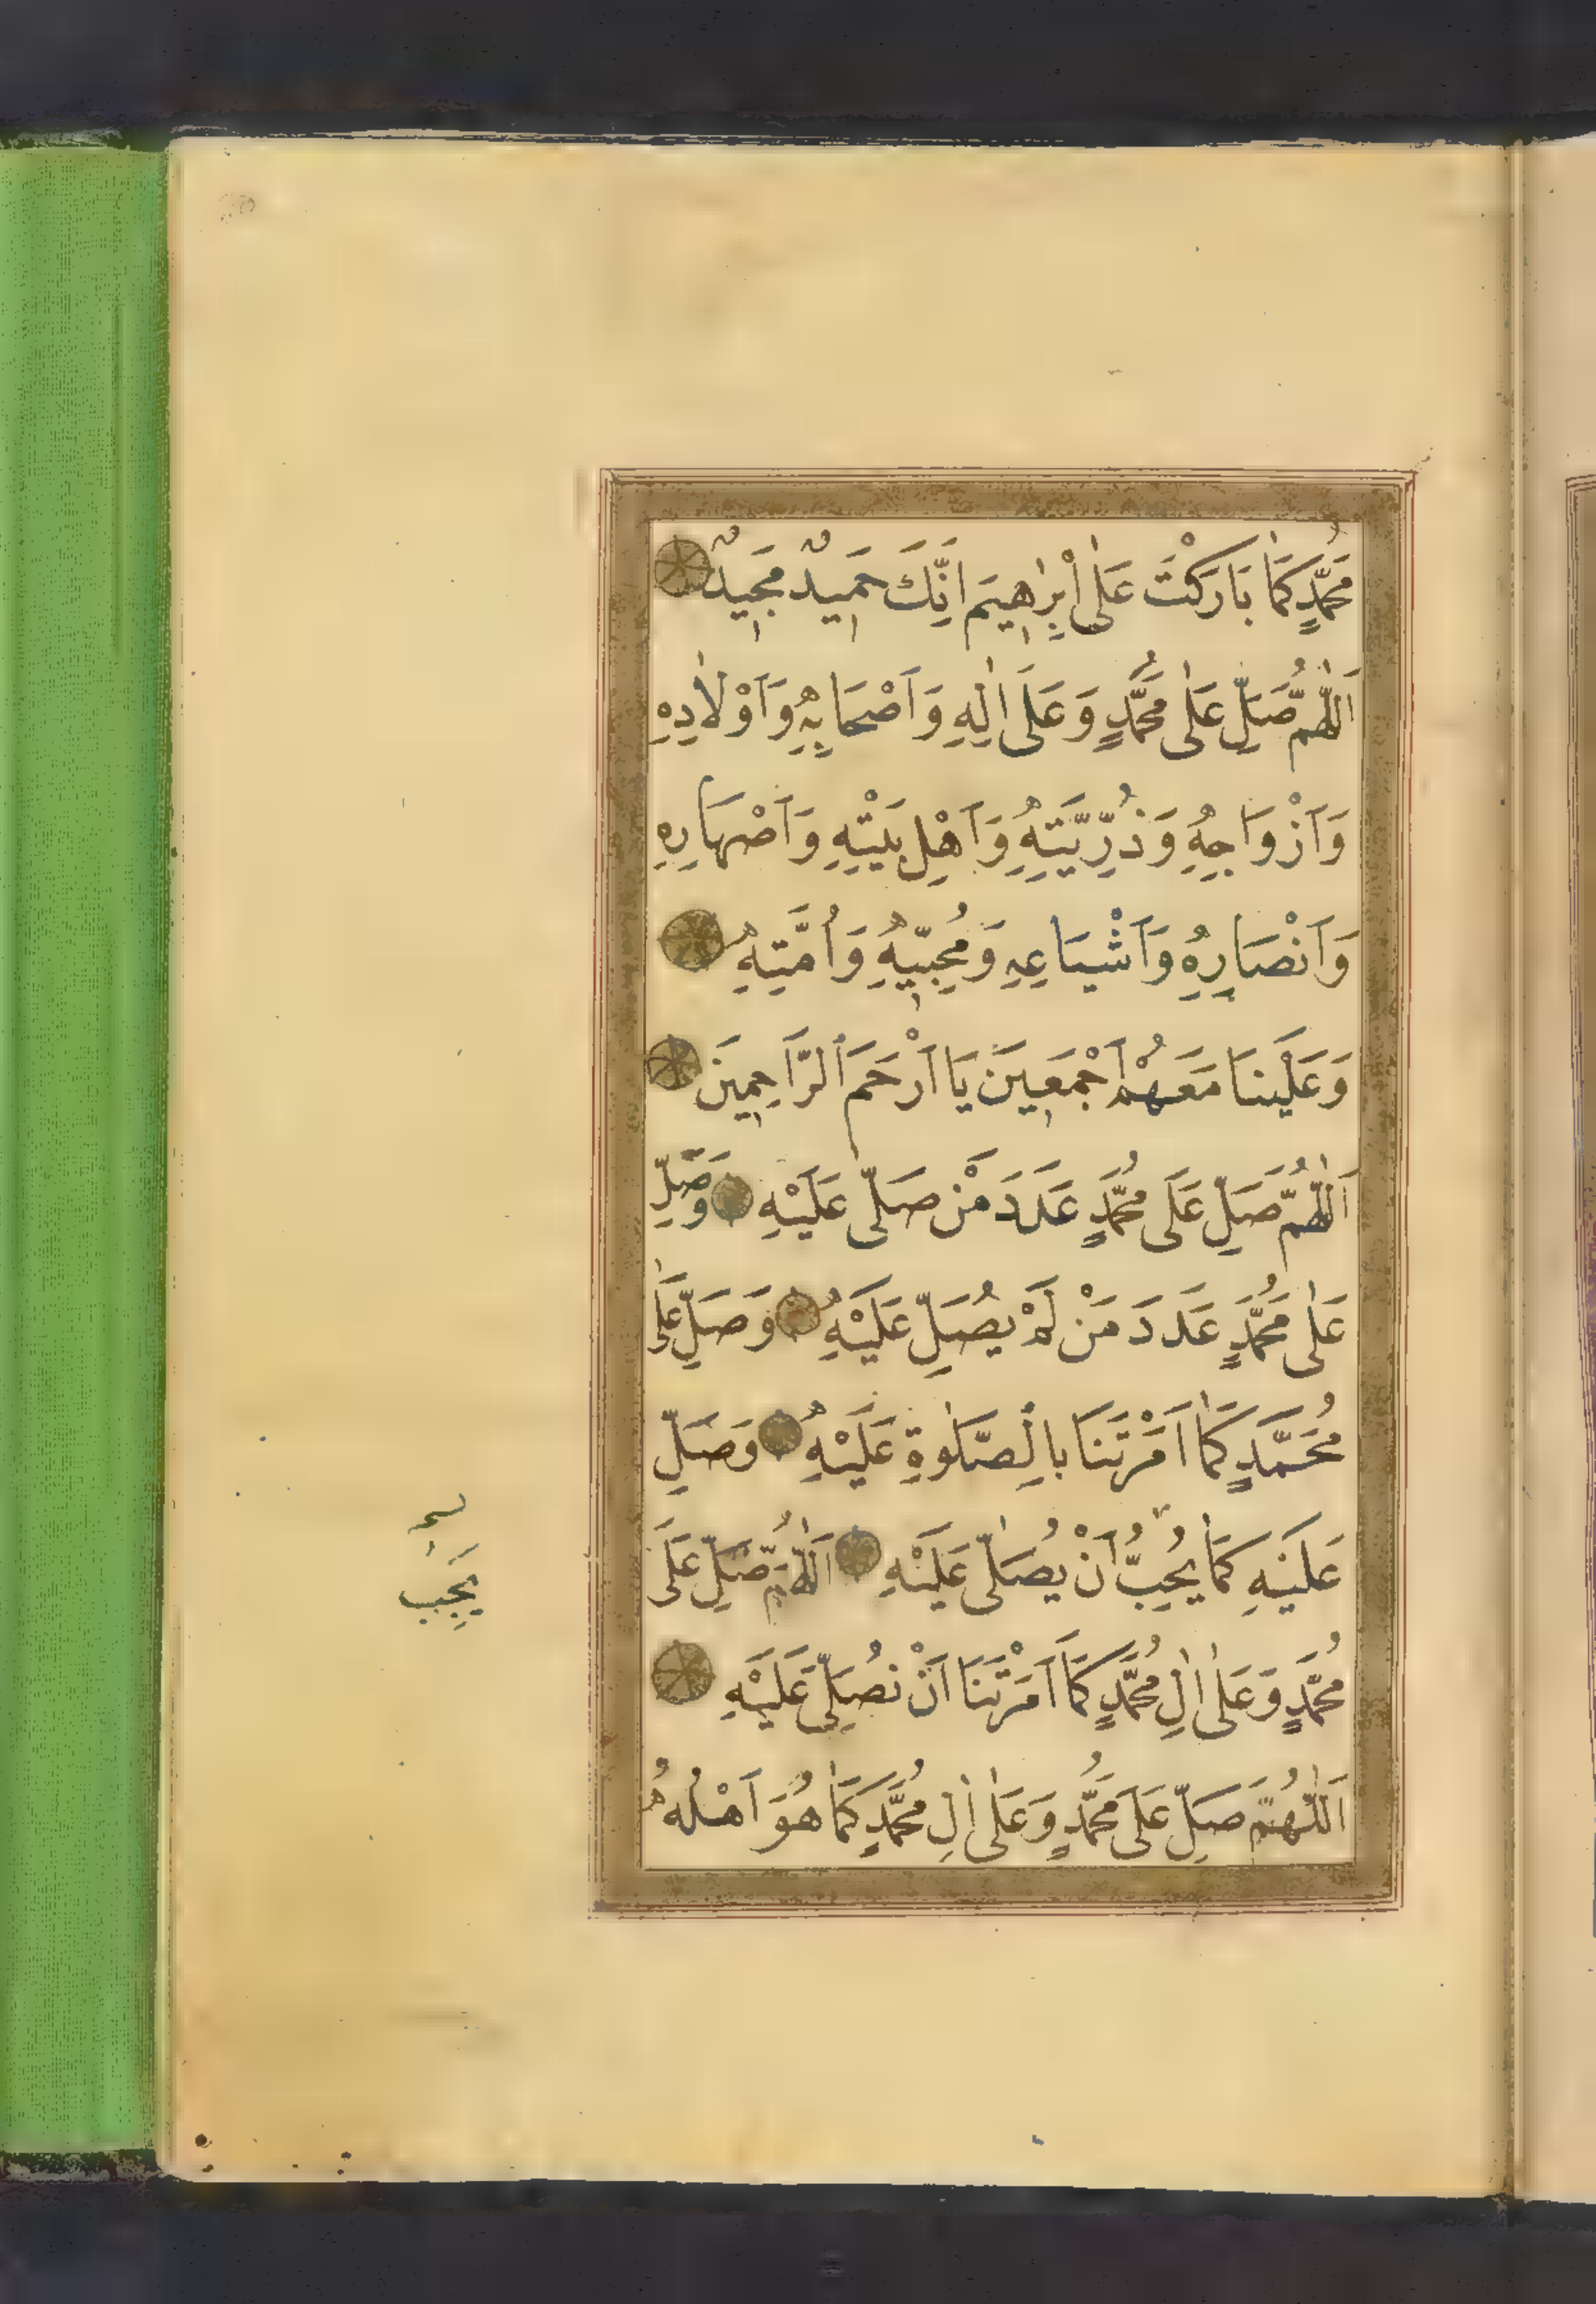 مُحَمَّدٍ كَمَا بَارَكْتَ عَلٰى اِبْرٰهِيمَ اِنَّكَ حَمِيدٌ مَجِيدٌ
اَللّٰهُمَّ صَلِّ عَلٰى مُحَمَّدٍ وَعَلَى اٰلِهِ وَاَصْحَابِهِ وَاَوْلَادِهِ
وَاَزْوَاجِهِ وَذُرِّيَّتِهِ وَاَهْلِ بَيْتِهِ وَاَصْهَارِهِ
وَاَنْصَارِهِ وَاَشْيَاعِهِ وَمُحِبِّيهِ وَاُمَّتِهِ
وَعَلَيْنَا مَعَهُمْ اَجْمَعِينَ يَا اَرْحَمَ الرَّاحِمِينَ
اَللّٰهُمَّ صَلِّ عَلَى مُحَمَّدٍ عَدَدَ مَنْ صَلّٰى عَلَيْهِ وَصَلِّ
عَلٰى مُحَمَّدٍ عَدَدَ مَنْ لَمْ يُصَلِّ عَلَيْهِ وَصَلِّ عَلٰى
مُحَمَّدٍ كَمَا اَمَرْتَنَا بِالصَّلٰوةِ عَلَيْهِ وَصَلِّ
عَلَيْهِ كَمَا يُحِبُّ اَنْ يُصَلّٰى عَلَيْهِ اَللّٰهُمَّ صَلِّ عَلَى
مُحَمَّدٍ وَعَلٰى اٰلِ مُحَمَّدٍ كَمَا اَمَرْتَنَا اَنْ نُصَلِّيَ عَلَيْهِ
اَللّٰهُمَّ صَلِّ عَلَى مُحَمَّدٍ وَعَلٰى اٰلِ مُحَمَّدٍ كَمَا هُوَ اَهْلُهُ
يَجِبُ